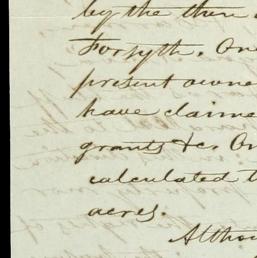 by the then
Forsyth. On
present owne
have claime
grants &c. On
calculated t
acres.
Altho